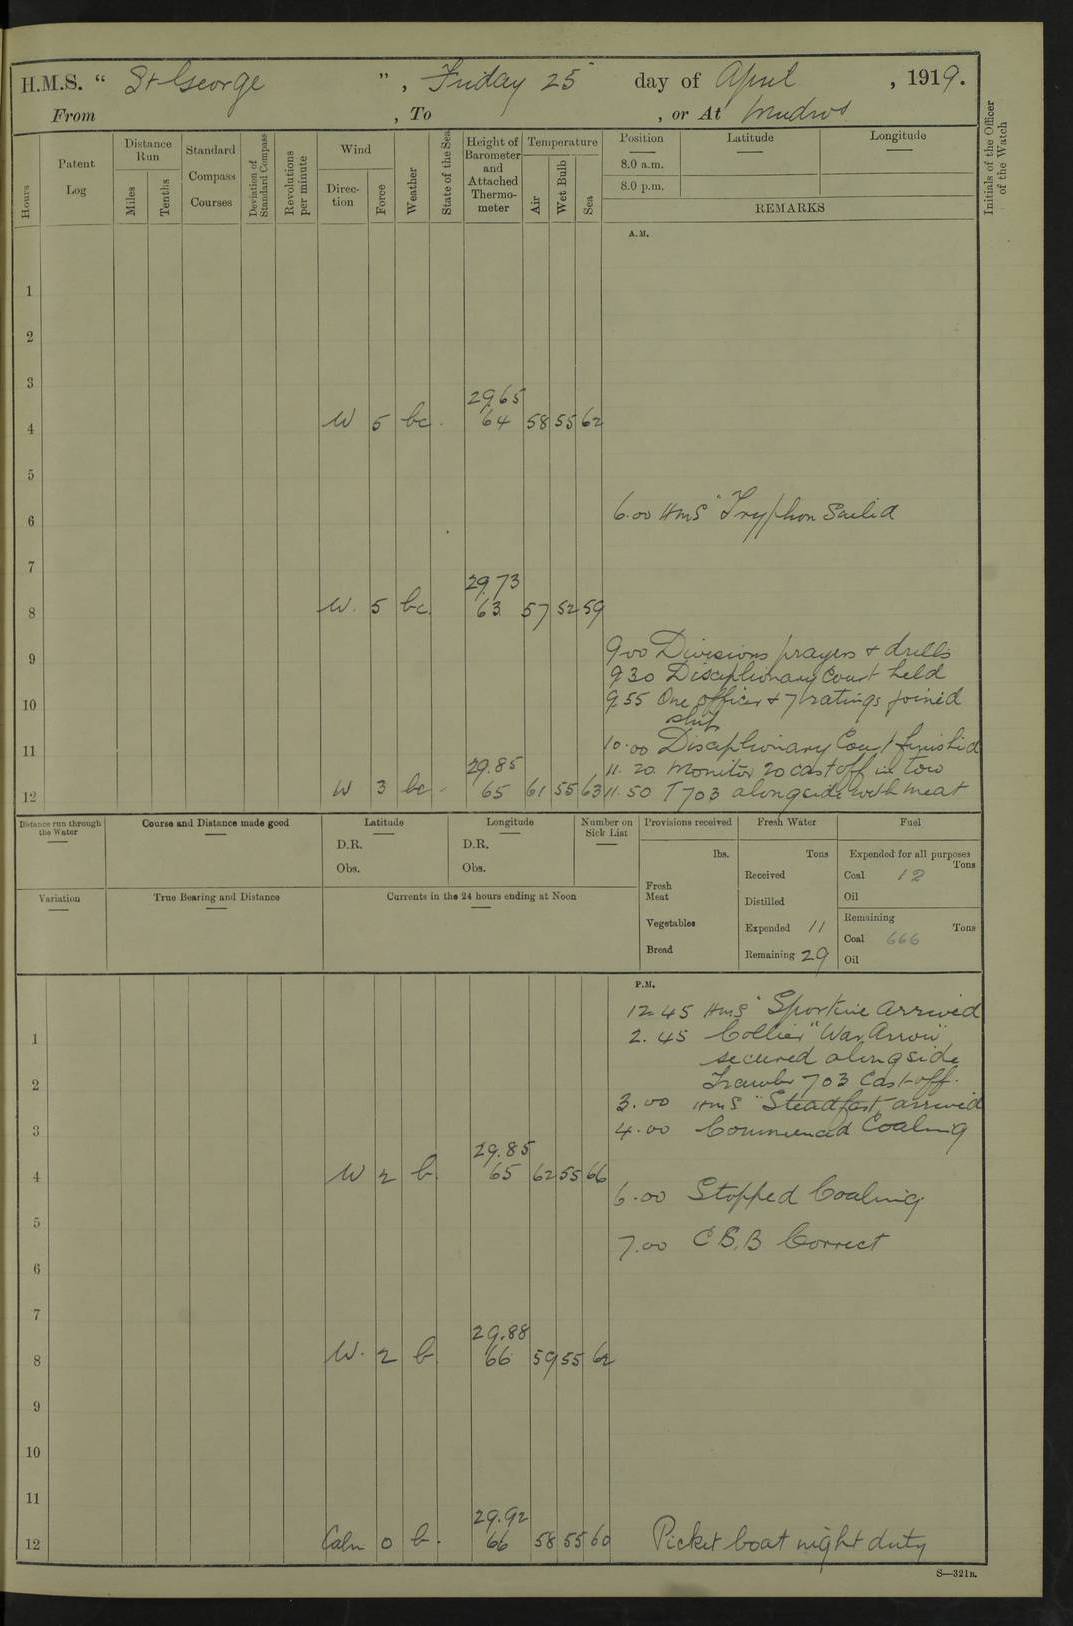 H.M.S. “ St George ” , Friday 25 day of April , 1919.
From , To , or At Mudros
Hours
Patent Log
Distance Run
Miles
Tenths
Standard Compass Courses
Deviation of Standard Compass
Revolutions per minute
Wind
Direction
Force
Weather
State of the Sea
Height of Barometer and Attached Thermometer
Temperature
Air
Wet Bulb
Sea
Position
8.0 a.m.
8.0 p.m.
Latitude
Longitude
REMARKS
Initials of the Officer of the Watch
A.M.
1
2
3
29.65
4 W 5 bc. 64 58 55 62
5
6.00 HMS "Tryphon Sailed
6
7
29.73
8 W. 5 bc. 63 57 52 59
9.00 Divisions prayers & drills
9
9 30 Disciplionary Court held
9 55 One officer & 7 ratings joined
10
ship
10.00 Disciplionary Court finished
11
29.85
11. 20. Monitor 20 cast off in tow
12 W 3 bc. 65 61 55 63
11.50 T 703 alongside with meat
Distance run through the Water
Course and Distance made good
Latitude
D.R.
Obs.
Longitude
D.R.
Obs.
Number on Sick List
Provisions received
lbs.
Fresh Meat
Vegetables
Bread
Fresh Water
Tons
Received
Distilled
Expended 11
Remaining 29
Fuel
Expended for all purposes
Tons
Coal 12
Oil
Remaining
Tons
Coal 666
Oil
Variation
True Bearing and Distance
Currents in the 24 hours ending at Noon
P.M.
12.45 HMS "Sportive arrived
1
2. 45 Collier "War Arrow"
secured alongside
2
Trawler 703 Cast off.
3.00 HMS "Steadfast arrived
3
4.00 Commenced Coaling
29.85
4 W 2 b. 65 62 55 66
6.00 Stopped Coaling
5
7.00 C B.B Correct
6
7
29.88
8 W. 2 b. 66 59 55 62
9
10
11
29.92
12 Calm 0 b. 66 58 55 60 Picket boat night duty
S—321B.